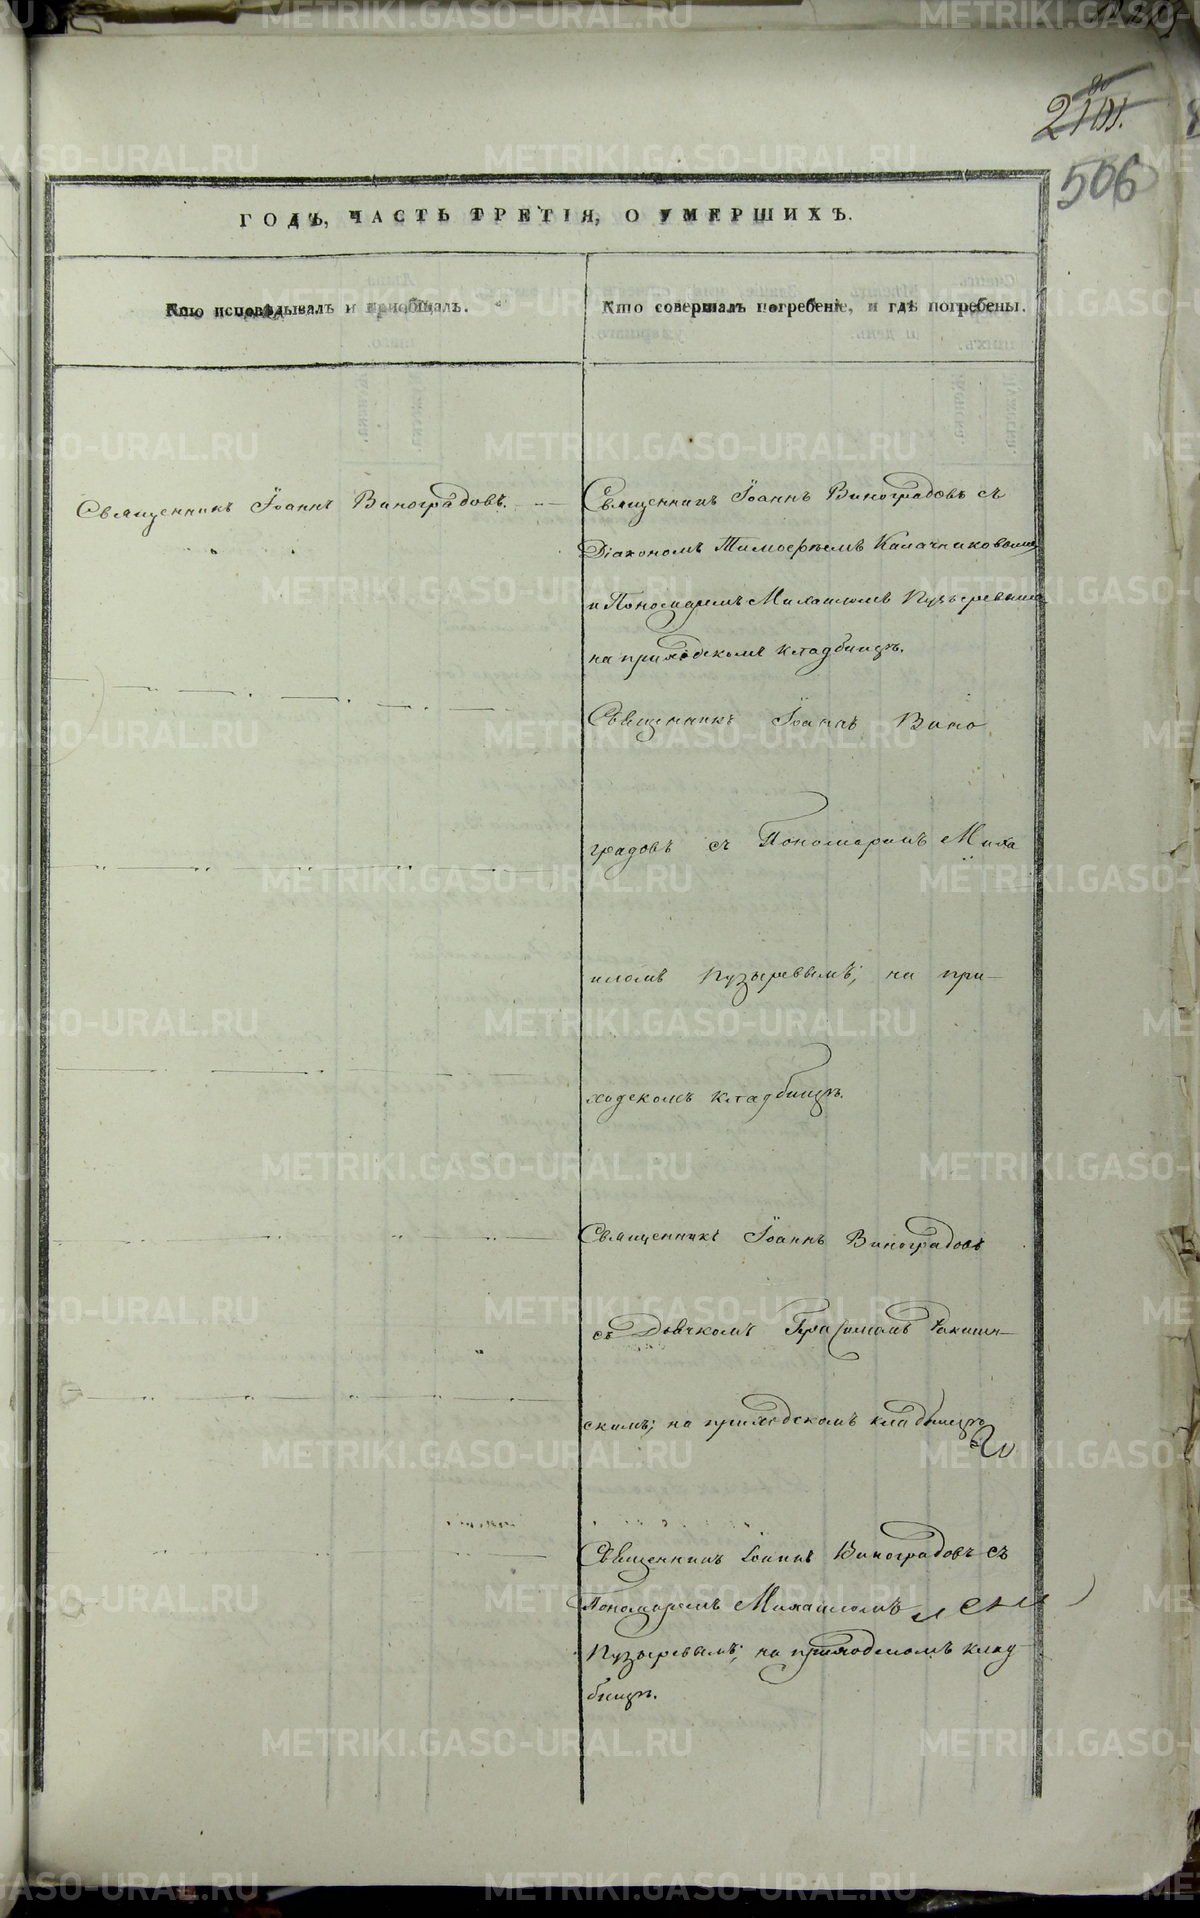 506
ГОДЪ, ЧАСТЬ ТРЕТІЯ, О УМЕРШИХЪ.
Кто исповѣдывалъ и пріобщалъ.
Кто совершалъ погребеніе, и гдѣ погребены.
Священникъ Іоаннъ Виноградовъ.
Священникъ Іоаннъ Виноградовъ съ
Діакономъ Тимофеемъ Калачниковымъ
и Пономаремъ Михаиломъ Пузыревымъ
на приходскомъ кладбищѣ.
Священникъ Іоаннъ Вино
градовъ съ Пономаремъ Миха
иломъ Пузыревымъ; на при-
ходскомъ кладбищѣ.
Священникъ Іоаннъ Виноградовъ
съ Дьячкомъ Герасимомъ
скимъ; на приходскомъ кладбищѣ
Священникъ Іоаннъ Виноградовъ съ
Пономаремъ Михаиломъ
Пузыревымъ; на приходскомъ клад
бищѣ.
METRIKI.GASO-URAL.RU